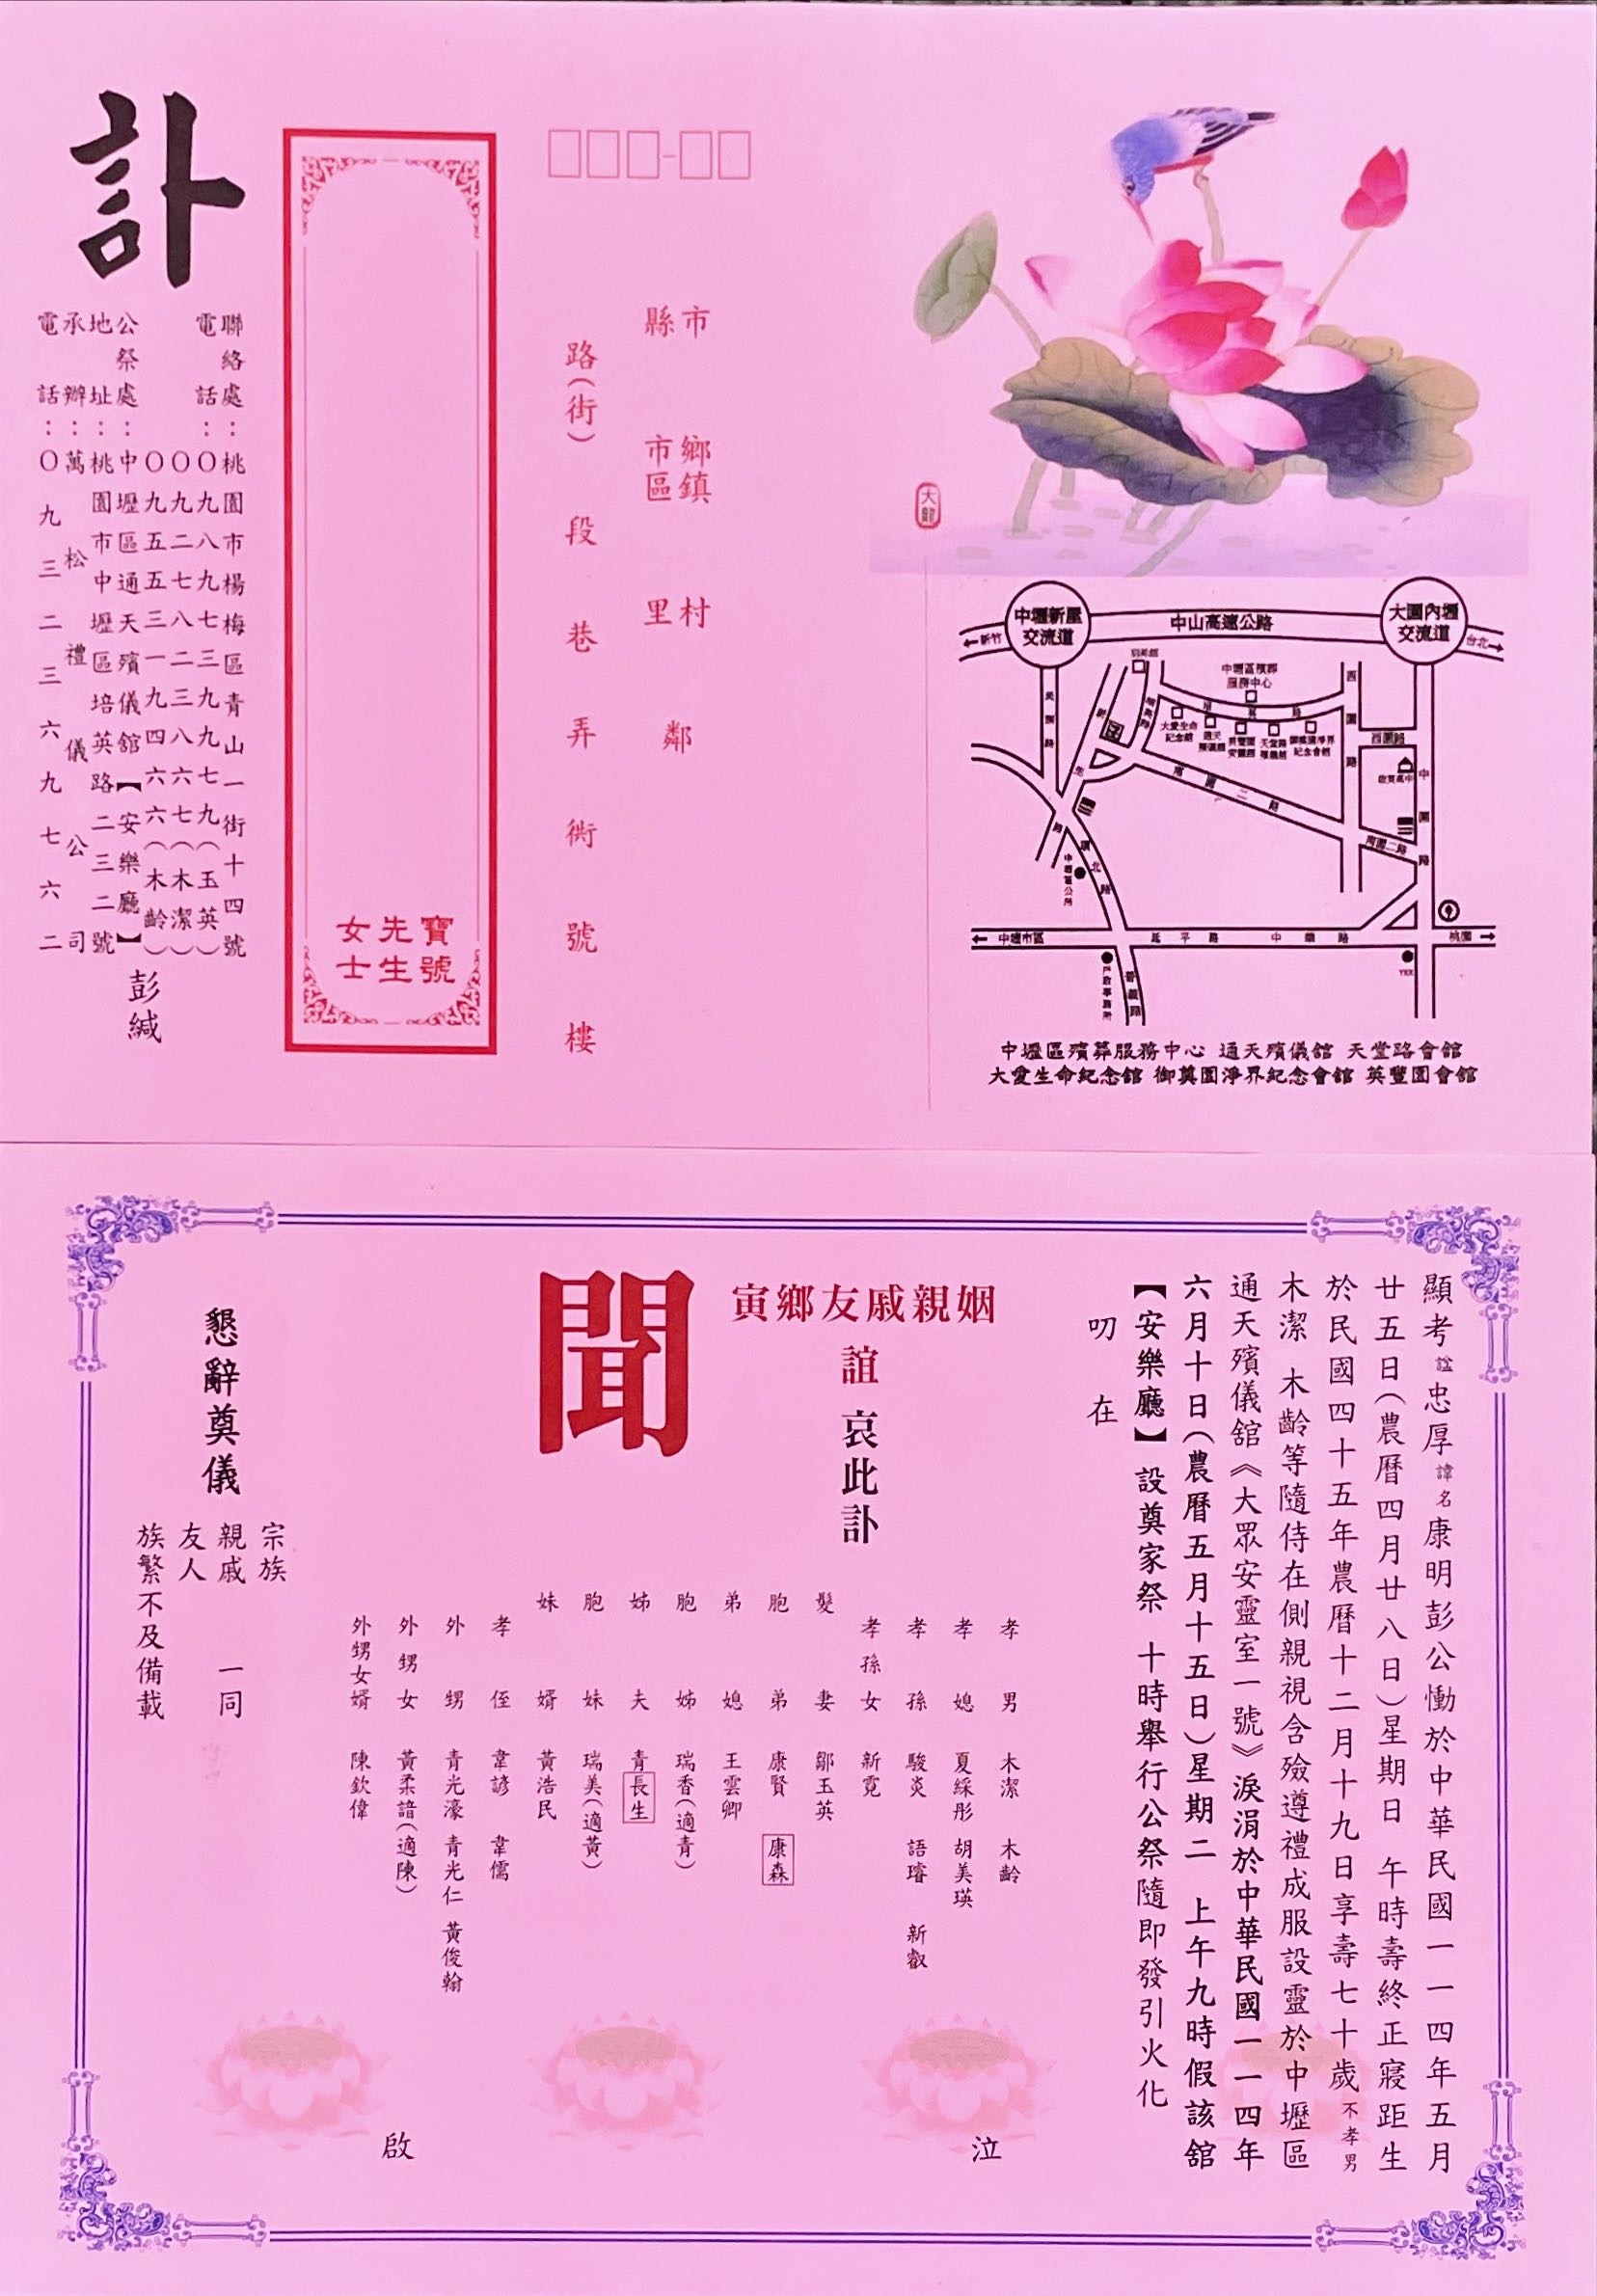 訃
聯絡處：桃園市楊梅區青山一街十四號
電話：０九八九七三九九七九（玉英）
０九二七八二三八六七（木潔）
０九五五三一九四六六（木齡）
公祭處：中壢區通天殯儀館【安樂廳】
地址：桃園市中壢區培英路二三二號
承辦：萬松禮儀公司
電話：０九三二三六九七六二
彭緘
寶號
先生
女士
市
縣
鄉鎮
市區
村
里
鄰
路（街）段巷弄衖號樓
大龍
中壢新屋
交流道
中山高速公路
大園內壢
交流道
←新竹
台北→
中壢區殯葬
服務中心
大愛生命
紀念館
西園路
西園路
中園路
南園二路
南園二路
環北路
中壢區公所
←中壢市區
延平路
中華路
桃園→
YKK
中壢區殯葬服務中心 通天殯儀館 天堂路會館
大愛生命紀念館 御奠園淨界紀念會館 英豐園會館
顯考諡忠厚諱名康明彭公慟於中華民國一一四年五月
廿五日（農曆四月廿八日）星期日 午時壽終正寢距生
於民國四十五年農曆十二月十九日享壽七十歲不孝男
木潔 木齡等隨侍在側親視含殮遵禮成服設靈於中壢區
通天殯儀館《大眾安靈室一號》淚涓於中華民國一一四年
六月十日（農曆五月十五日）星期二 上午九時假該館
【安樂廳】設奠家祭 十時舉行公祭隨即發引火化
叨在
姻親戚友鄉寅
誼 哀此訃
聞
孝男 木潔 木齡
孝媳 夏綵彤 胡美瑛
孝孫 駿炎 語璿 新叡
孝孫女 新霓
髮妻 鄒玉英
胞弟 康賢 康森
弟媳 王雲卿
胞姊 瑞香（適青）
姊夫 青長生
胞妹 瑞美（適黃）
妹婿 黃浩民
孝侄 韋諺 韋儒
外甥 青光濠 青光仁 黃俊翰
外甥女 黃柔諳（適陳）
外甥女婿 陳欽偉
泣
啟
宗族
親戚 一同
友人
族繁不及備載
懇辭奠儀